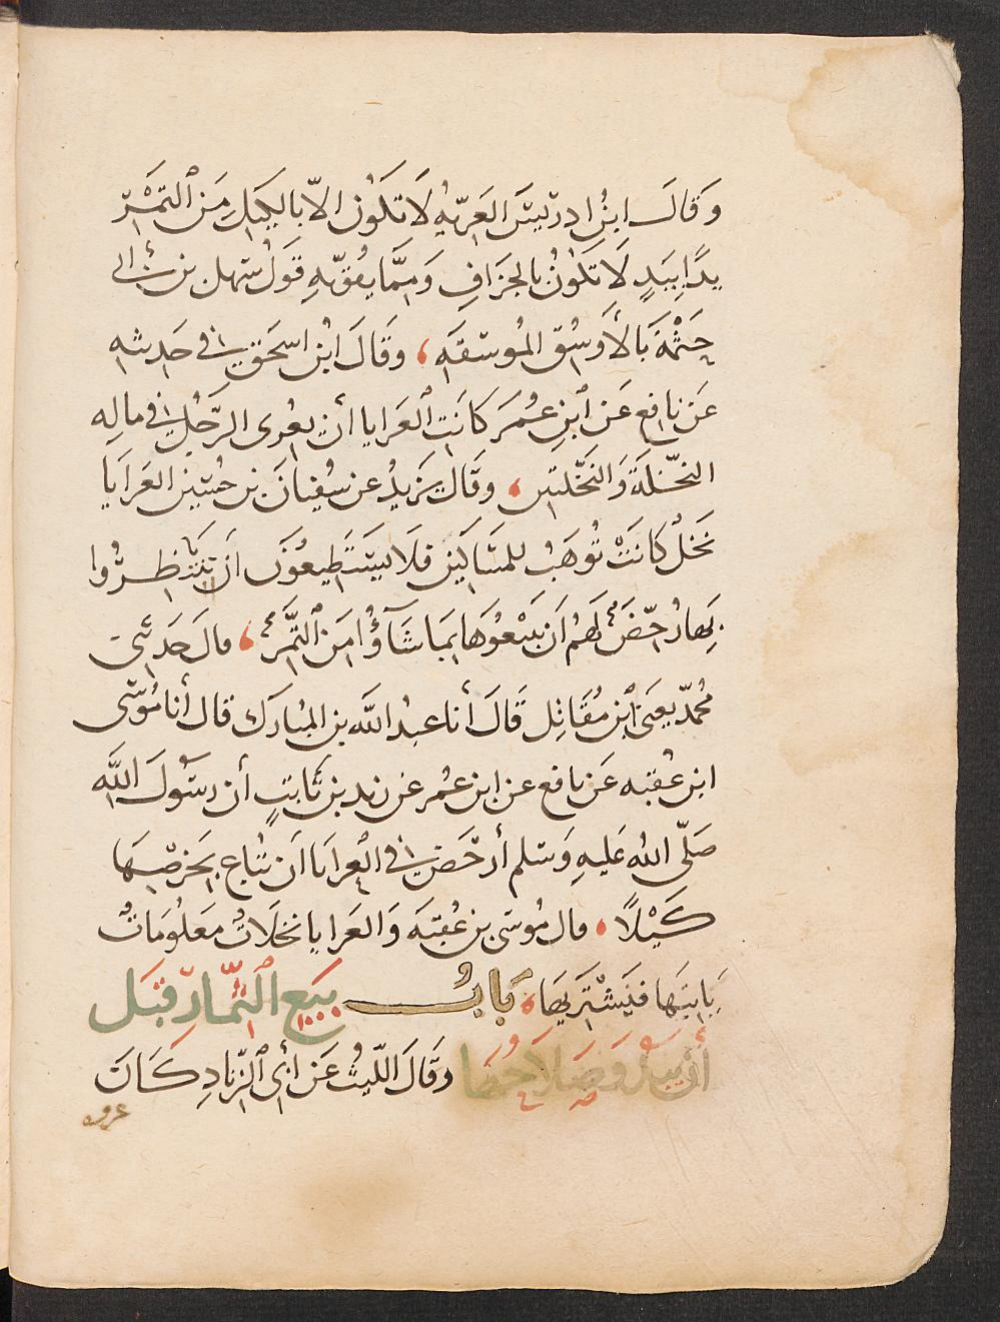 وَقَالَ ابنُ ادرِيسَ العَرِيّهِ لَا تَكَوُن الاّ بالكَيلِ مَن التَمْرِ
يدًا بِيَدٍ لَا تَكوُنُ بالجزَافِ وَمِمَّا يقُوّيهِ قَولُ سَهل بن أبى
حَثْمَةَ بَالأَوسُق المُوسقَهِ، وقَالَ ابنُ اسحَق فى حَدِيثه
عَن نافع عَن ابنِ عُمَر كَانَتِ العَرايا أن يعُرى الرّجُل فى مالِه
النخّلَةَ وَالنَخّلتين، وقَال يَزيدُ عن سفُيانَ بن حُسَين العَرَايَا
نَخلٌ كَانَتْ تُوهَبُ للمَسَاكَين فلا يستَطيعُونَ اَن يَنتَظِرُوا
بِهَا رُخّصَ لَهُم اَن يَبيعُوَهَا بمَا شَآؤُا مَن التَّمَرِ، قال حَدثنى
مُحمّد يعَنى ابن مُقَاتِل قَالَ أنا عبدُ اللَّه بن المُبارَك قال أنا مُوسَى
ابن عُقبه عَن نافع عن ابن عمُر عَن زيد بن ثَابتٍ أن رسَوُلَ اللَّه
صَلّى اللهُ عَليهِ وَسَلم أرخَّصَ فى العَرايَا اَن تُبَاع بِخَرصِهَا
كَيْلًا، قال مُوسَى بن عُقبَةَ وَالعَرايا نخَلَاتٌ مَعَلُومَاتٌ
يَاتيَهَا فيَشْتَريهَا، بَابُ بَيَع الثِّمَارِ قَبَل
أن يَبدُوَ صَلَاحُهَا وَقَالَ اللّيثُ عَن اَبى الزّنادِ كَانَ
عروه